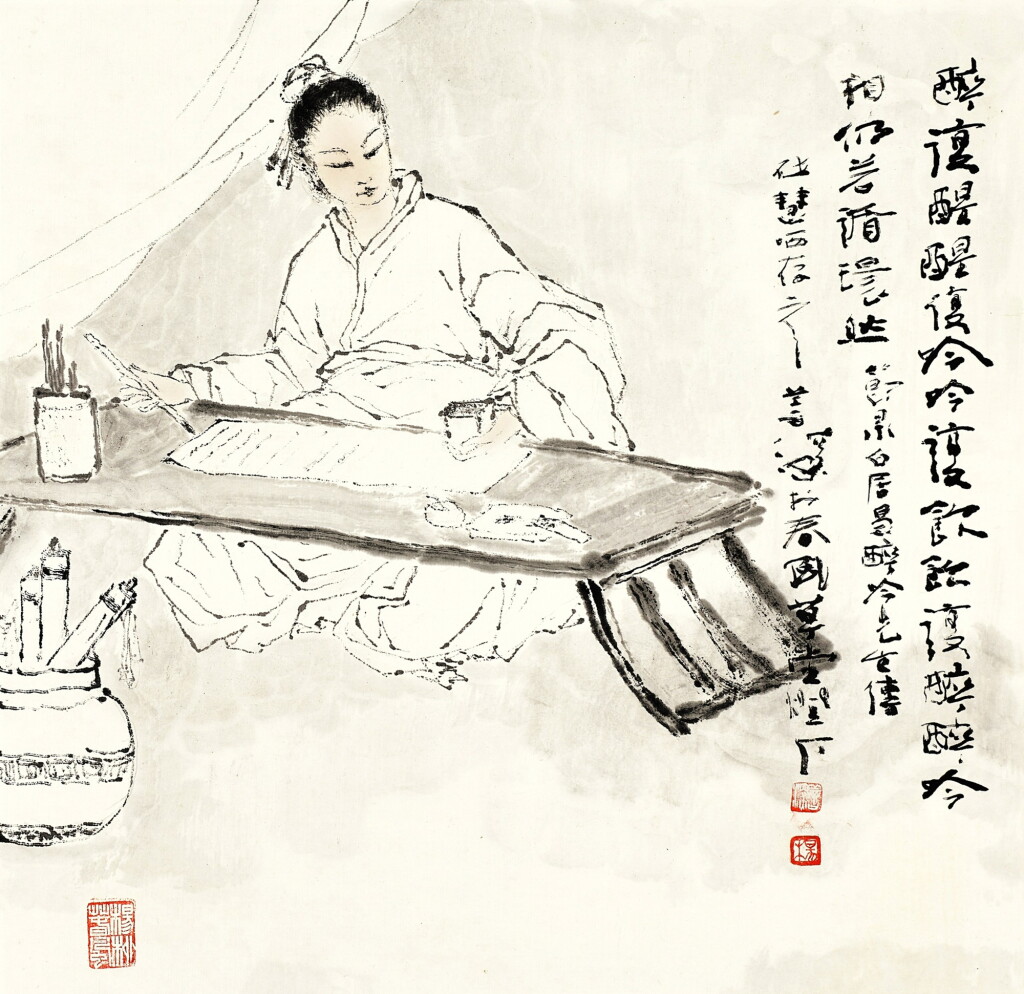 醉復醒醒復吟吟復飲飲復醉醉吟
相仍若循環然 節錄白居易醉吟先生傳
慧哂存之 於春草堂燈下
楊
楊林